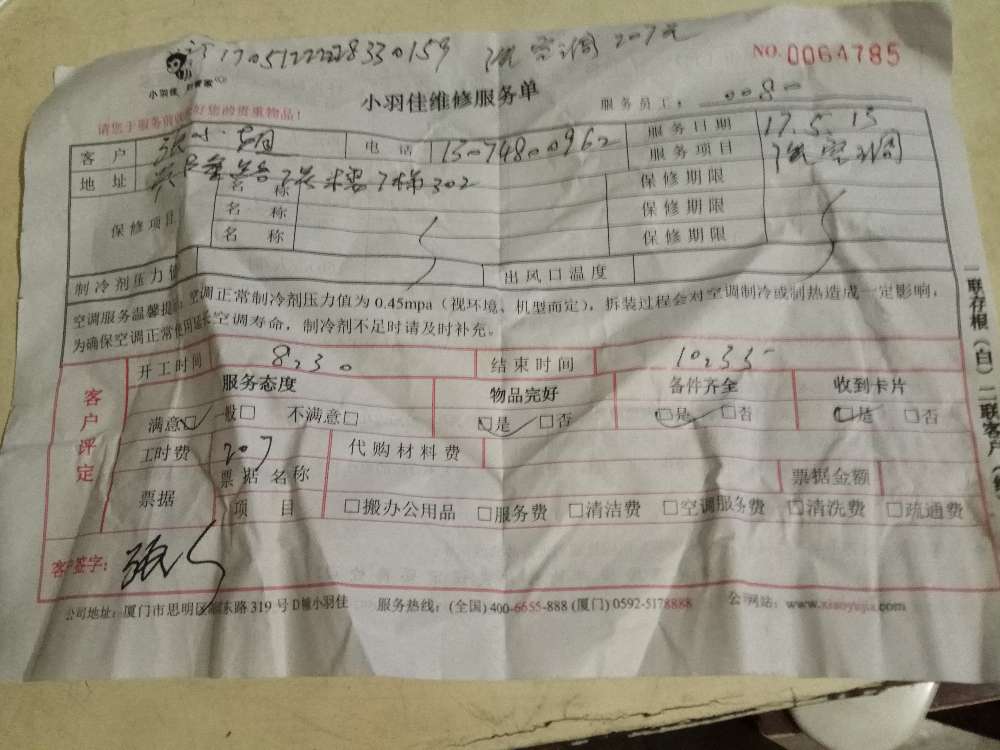 订1705122228330159 洗空调 207元
NO.0064785
小羽佳 好管家
请您于服务前收好您的贵重物品！
小羽佳维修服务单
服务员工：0080
客户 电话 15074800962 服务日期 17.5.15
地址 7梯302 服务项目 洗空调
保修项目 名称 保修期限
名称 保修期限
名称 保修期限
制冷剂压力值 出风口温度
空调服务温馨提示：空调正常制冷剂压力值为0.45mpa（视环境、机型而定），拆装过程会对空调制冷或制热造成一定影响，
为确保空调正常使用延长空调寿命，制冷剂不足时请及时补充。
客户评定
开工时间 8:30 结束时间 10:35
服务态度 物品完好 备件齐全 收到卡片
满意□ 一般□ 不满意□ □是 □否 □是 □否 □是 □否
工时费 207 代购材料费
票据 票据名称 票据金额
项目 □搬办公用品 □服务费 □清洁费 □空调服务费 □清洗费 □疏通费
客户签字：张
公司地址：厦门市思明区 东路319号D幢小羽佳 服务热线：(全国)400-6655-888 (厦门)0592-5178888 公司网站：www.xiaoyujia.com
一联存根（白）二联客户